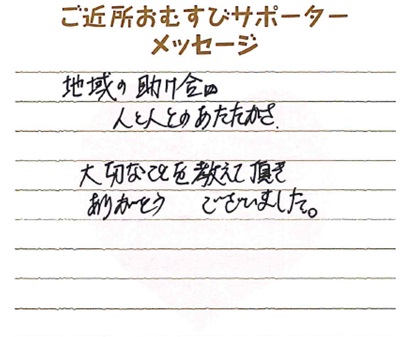 ご近所おむすびサポーター
メッセージ
地域の助け合い
人と人とのあたたかさ
大切なことを教えて頂き
ありがとう ございました。